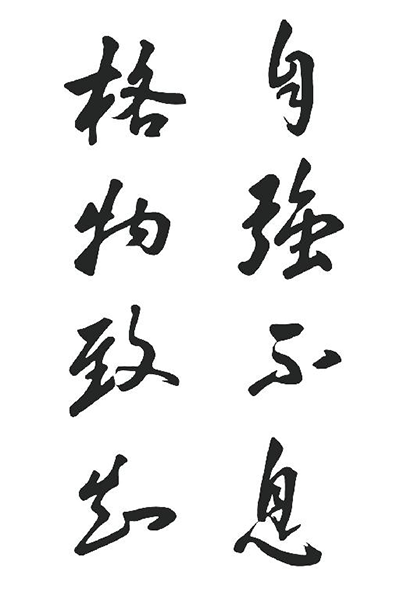 自強不息
格物致知